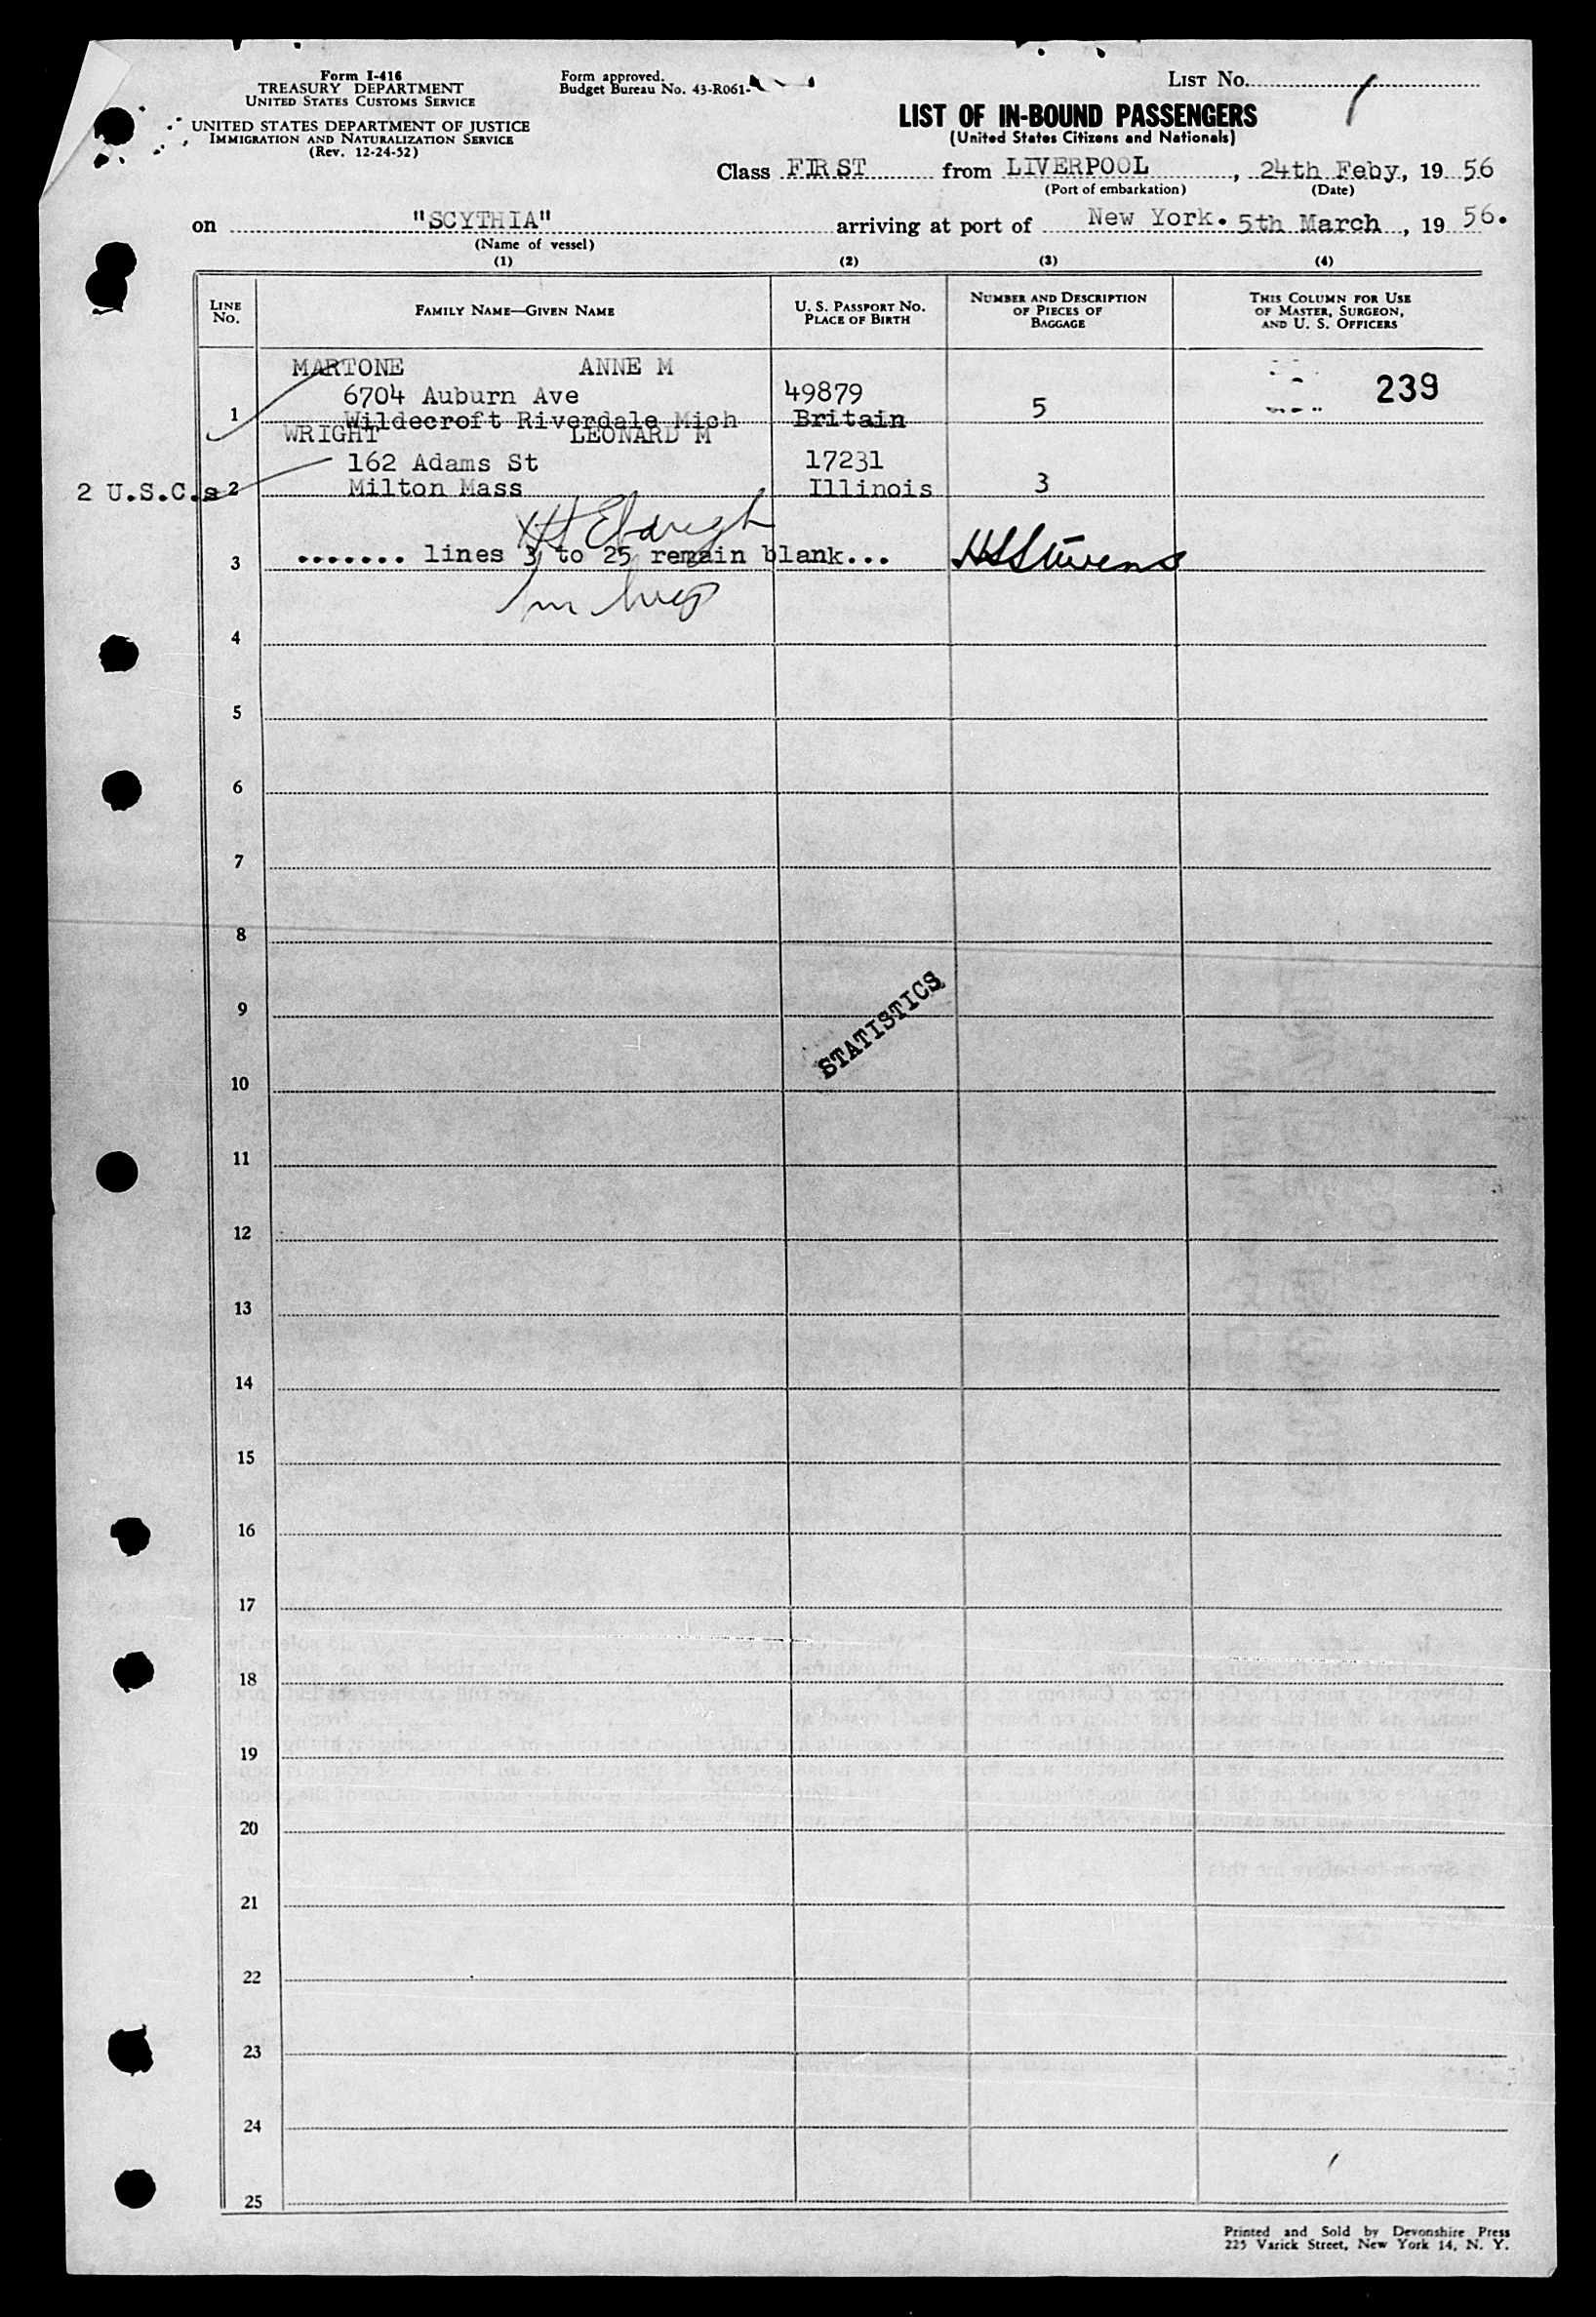 Form I-416
TREASURY DEPARTMENT
UNITED STATES CUSTOMS SERVICE
UNITED STATES DEPARTMENT OF JUSTICE
IMMIGRATION AND NATURALIZATION SERVICE
(Rev. 12-24-52)
Form approved.
Budget Bureau No. 43-R061-
LIST No. 1
LIST OF IN-BOUND PASSENGERS
(United States Citizens and Nationals)
Class FIRST from LIVERPOOL, 24th Feby, 19 56
(Port of embarkation) (Date)
on "SCYTHIA" arriving at port of New York. 5th March, 19 56.
(Name of vessel)
(1) (2) (3) (4)
LINE No. FAMILY NAME—GIVEN NAME U. S. PASSPORT No. PLACE OF BIRTH NUMBER AND DESCRIPTION OF PIECES OF BAGGAGE THIS COLUMN FOR USE OF MASTER, SURGEON, AND U. S. OFFICERS
MARTONE ANNE M
6704 Auburn Ave 49879 239
1 Wildecroft Riverdale Mich Britain 5
WRIGHT LEONARD M
162 Adams St 17231
2 U.S.C.s 2 Milton Mass Illinois 3
3 ....... lines 3 to 25 remain blank... HS Stevens
4
5
6
7
8
9
STATISTICS
10
11
12
13
14
15
16
17
18
19
20
21
22
23
24
25
Printed and Sold by Devonshire Press
225 Varick Street, New York 14, N. Y.